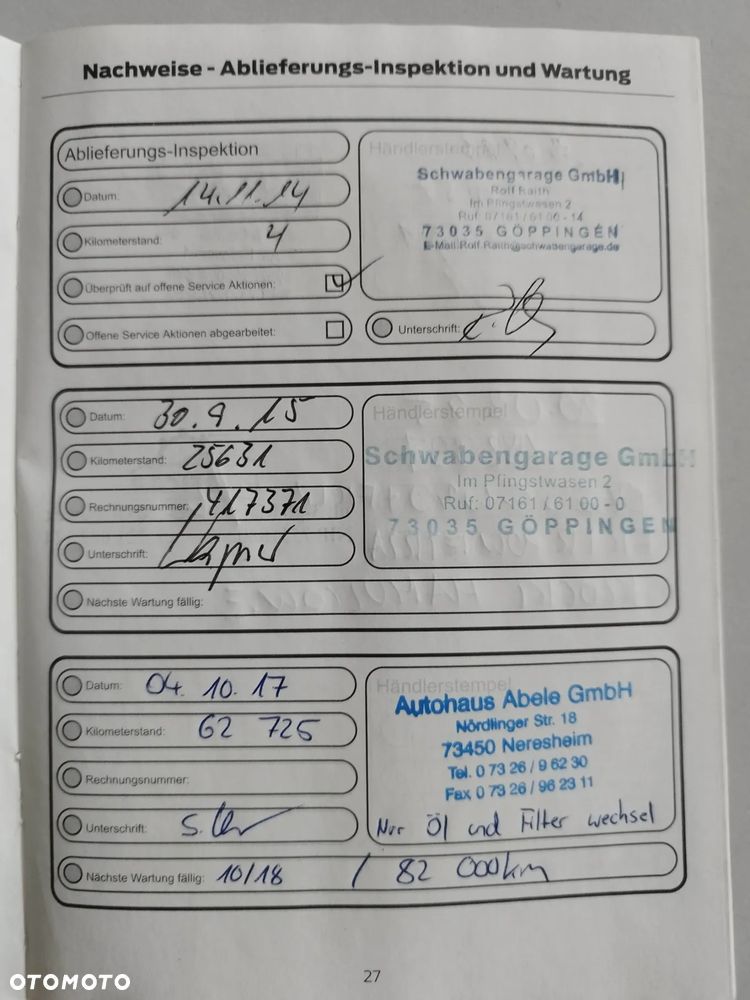 Nachweise - Ablieferungs-Inspektion und Wartung
Ablieferungs-Inspektion
Datum: 14.11.14
Kilometerstand: 4
Überprüft auf offene Service Aktionen:
Offene Service Aktionen abgearbeitet:
Händlerstempel
Schwabengarage GmbH
Rolf Raith
Im Pfingstwasen 2
Ruf 07161 / 61 00 - 14
73035 GÖPPINGEN
E-Mail:Rolf.Raith@schwabengarage.de
Unterschrift:
Datum: 30.9.15
Kilometerstand: 25631
Rechnungsnummer: 417371
Unterschrift:
Nächste Wartung fällig:
Händlerstempel
Schwabengarage GmbH
Im Pfingstwasen 2
Ruf: 07161 / 61 00 - 0
73035 GÖPPINGEN
Datum: 04. 10. 17
Kilometerstand: 62 725
Rechnungsnummer:
Unterschrift:
Nächste Wartung fällig: 10/18 / 82 000km
Händlerstempel
Autohaus Abele GmbH
Nördlinger Str. 18
73450 Neresheim
Tel. 0 73 26 / 9 62 30
Fax 0 73 26 / 96 23 11
Nur Öl und Filter wechsel
27
OTOMOTO